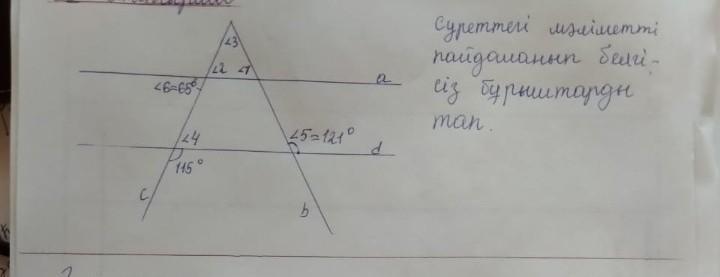 Суреттегі мәліметті
пайдаланып белгі-
сіз бұрыштарды
тап.
∠3
∠2 ∠1
a
∠6=65°
∠4
∠5=121°
d
115°
c
b